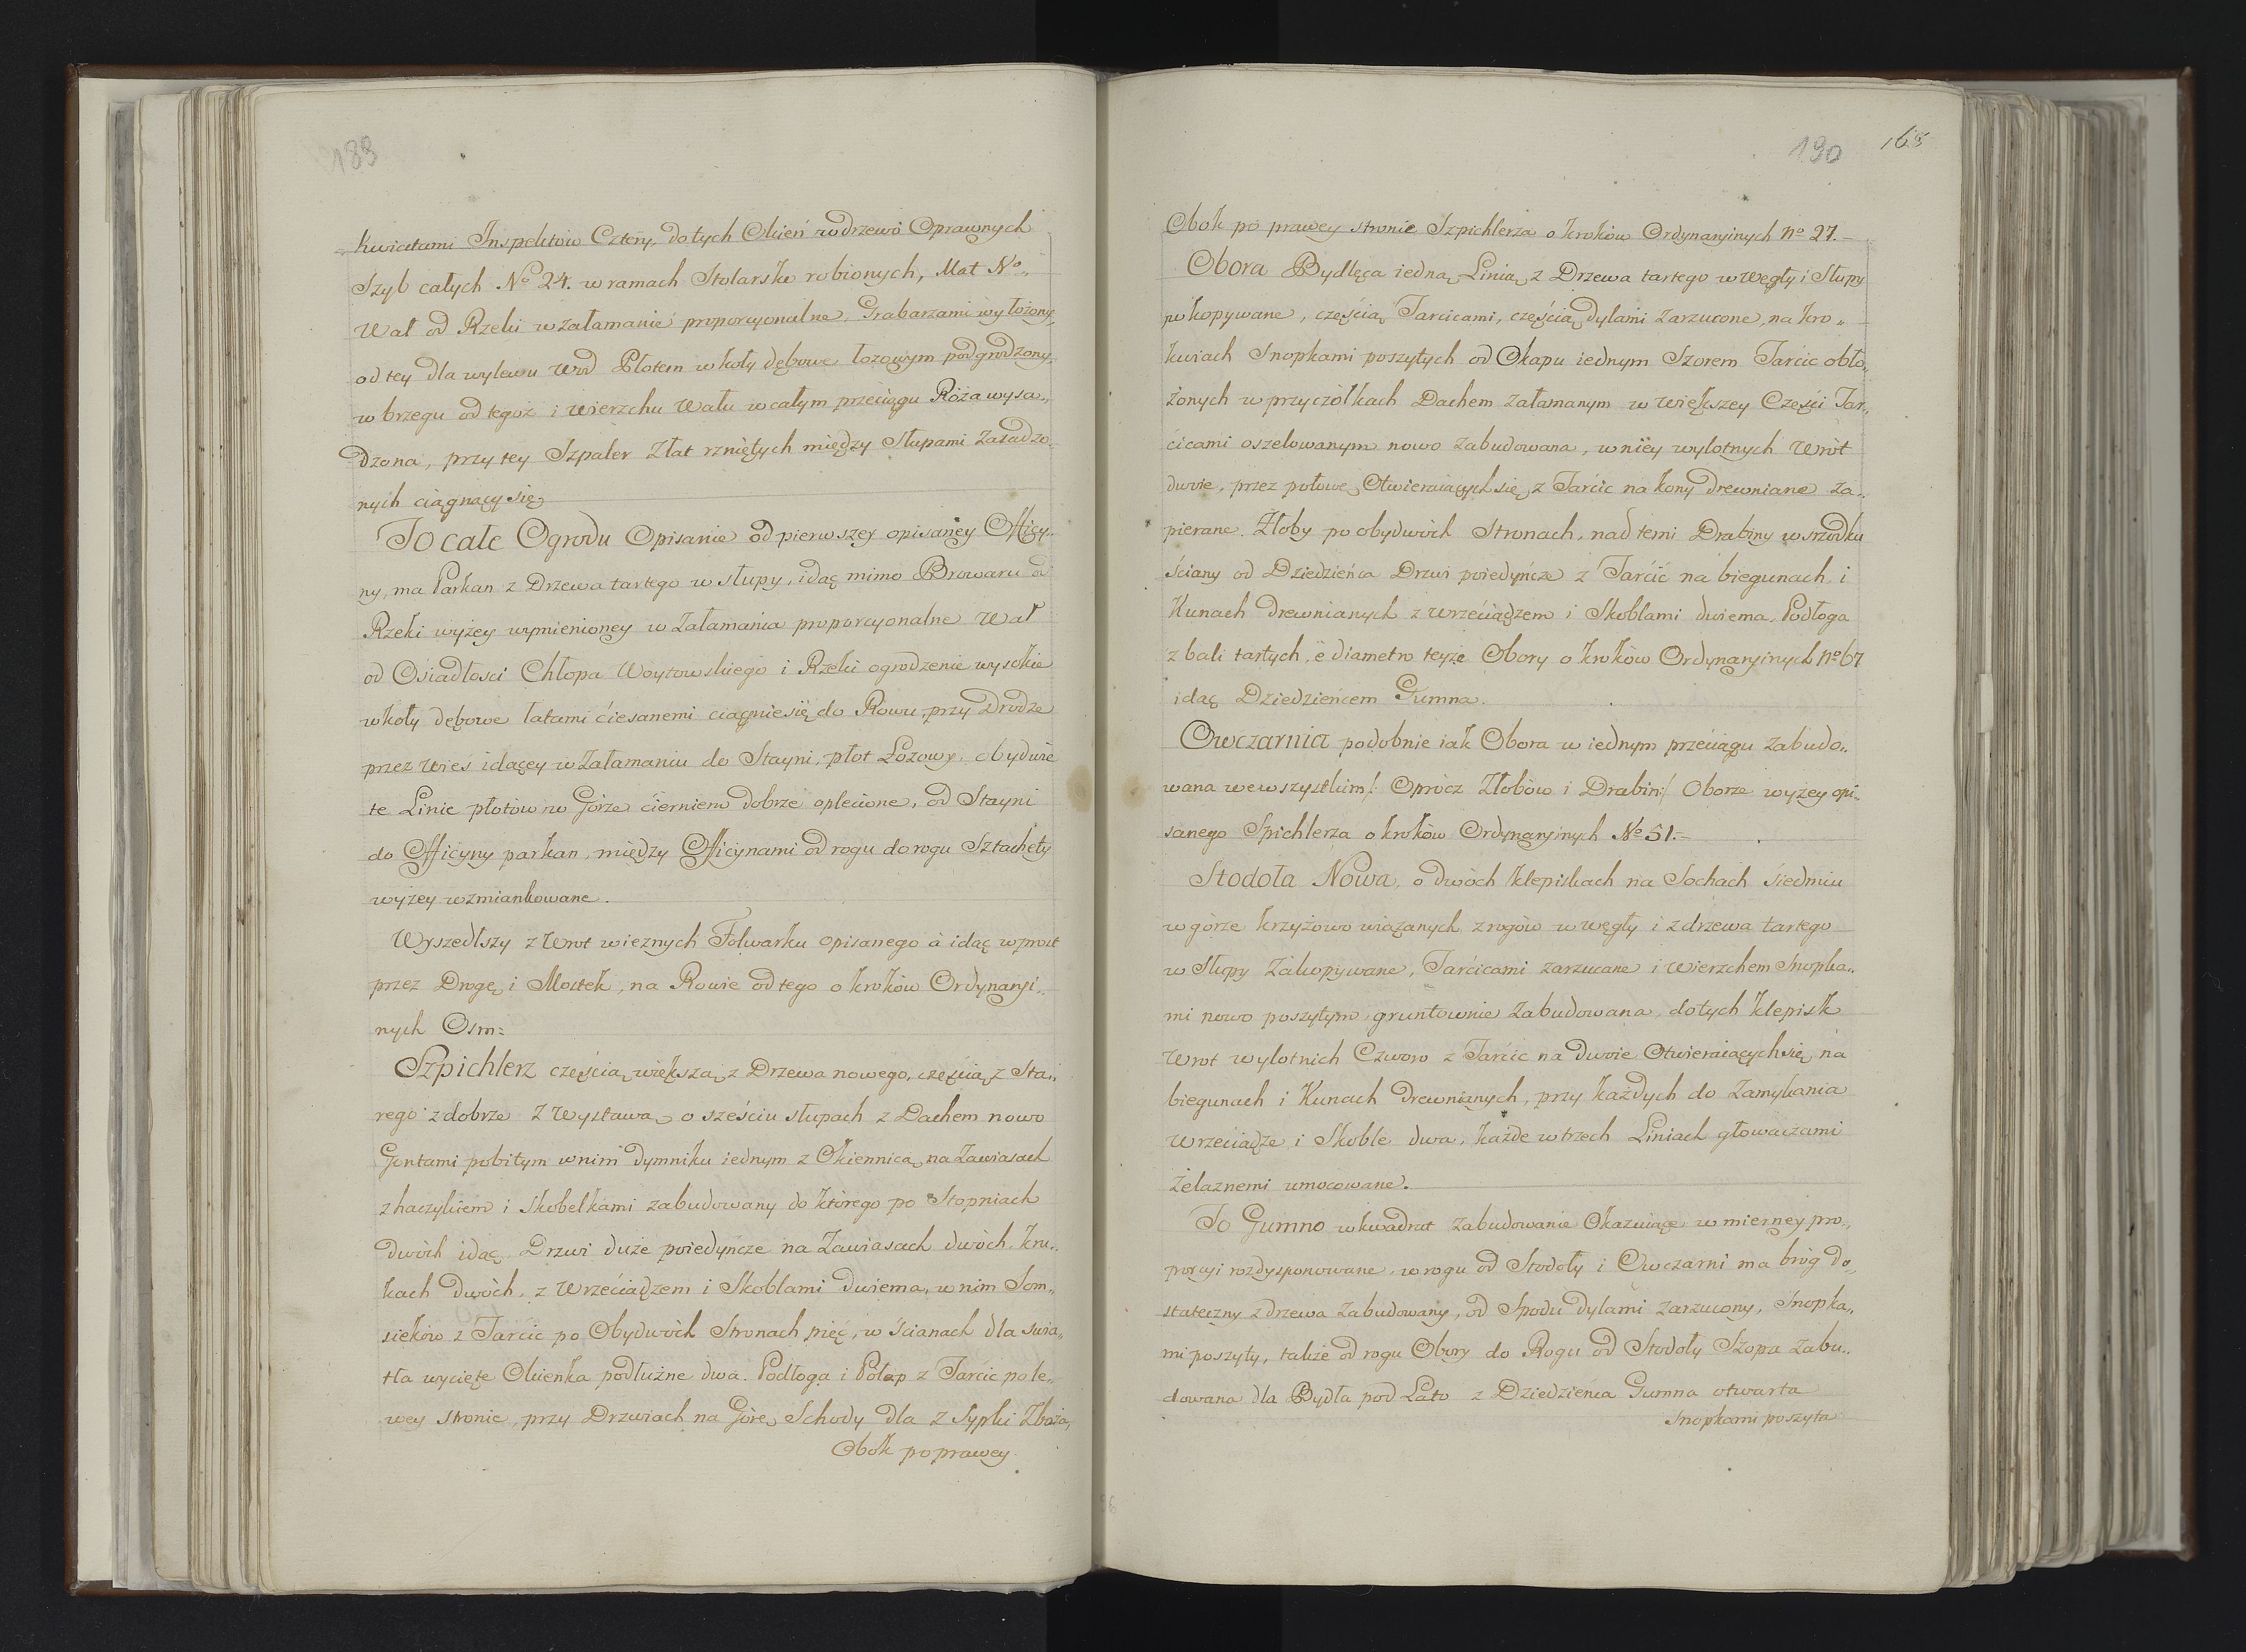 189
kwiatami Inspektow Cztery, do tych Okień w drzewo Oprawnych
Szyb całych No 24. w ramach Stolarska robionych, Mat No„
Wał od Rzeki w załamanie proporcyonalne, Grabarzami wyłożony,
od tey dla wylewu wod Płotem w koły dębowe łozowym podgrodzony,
w brzegu od tegoż i wierzchu Wału w całym przeciągu Róża wysa„
dzona, przy tey Szpaler z łat rzniętych między Słupami zasadzo„
nych ciągnący się
To całe Ogrodu Opisanie od pierwszey opisaney Officy„
ny, ma Parkan z Drzewa tartego w słupy, idąc mimo Browaru od
Rzeki wyżey wymienioney w załamania proporcyonalne Wał
od Osiadłosci Chłopa Woytowskiego i Rzeki ogrodzenie wysokie
w koły dębowe łatami ciesanemi ciągnie się do Rowu, przy drodze
przez Wieś idącey w załamaniu do Stayni, płot Łozowy, obydwie
te Linie płotow w Górze cierniem dobrze oplecione, od Stayni
do Officyny parkan, między Officynami od rogu do rogu Sztachety
wyżey wzmiankowane.
Wyszedłszy z Wrot wieznych Folwarku opisanego à idąc wprost
przez Drogę i Mostek, na Rowie od tego o krokow Ordynaryi„
nych Osm:
Szpichlerz częścią większą z Drzewa nowego, częścią z Sta„
rego zdobrze z Wystawą o sześciu słupach z Dachem nowo
Gontami pobitym w nim dymniku iednym z Okiennicą na Zawiasach
z haczykiem i skobelkami zabudowany do którego po Stopniach
dwóch idąc, Drzwi duże poiedyńcze na Zawiasach dwóch, kru„
kach dwóch, z Wrzeciądzem i Skoblami dwiema, w nim Som„
siekow z Tarcic po Obydwóch Stronach pięć, w ścianach dla swia„
tła wycięte Okienka podłużne dwa. Podłoga i Połap z Tarcic po le„
wey stronie, przy Drzwiach na Górę Schody dla z sypki Zboża,
Obok po prawey
190 168
Obok po prawey stronie Szpichlerza o krokow Ordynaryinych No 27.
Obora Bydlęca iedną Linią z Drzewa tartego w Węgły i Słupy
wkopywane, częścią Tarcicami, częścią dylami zarzucone, na kro„
kwiach Snopkami poszytych od Okapu iednym Szorem Tarcic obło„
żonych w przyczółkach Dachem załamanym w większey Częsci Tar„
cicami oszelowanym nowo zabudowana, w niey wylotnych Wrót
dwoie, przez połowę Otwieraiących się z Tarcic na kony drewniane za„
pierane. Żłoby po obydwóch Stronach, nad temi Drabiny w srzodku
ściany od Dziedzieńca Drzwi poiedyńcze z Tarcic na biegunach i
Kunach drewnianych z wrzeciądzem i Skoblami dwiema, Podłoga
z bali tartych, ë diametro teyże Obory o krokow Ordynaryinych No 67
idąc Dziedzieńcem Gumna.
Owczarnia podobnie iak Obora w iednym przeciągu zabudo„
wana we wszystkim /: Oprócz Złobów i Drabin :/ Oborze wyżey opi„
sanego Spichlerza o krokow Ordynaryinych No 51.
Stodoła Nowa, o dwóch klepiskach na Sochach siedmiu
w górze krzyżowo wiązanych z rogów w węgły i z drzewa tartego
w Słupy Zakopywane, Tarcicami zarzucane i Wierzchem Snopka„
mi nowo poszytym gruntownie zabudowana, do tych klepisk
Wrot wylotnich Czworo z Tarcic na dwoie Otwieraiących się na
biegunach i Kunach drewnianych, przy każdych do zamykania
Wrzeciądze i Skoble dwa, każde w trzech Liniach głowaczami
żelaznemi umocowane.
To Gumno w kwadrat zabudowanie Okazuiące w mierney pro„
porcyi rozdysponowane, w rogu od Stodoły i Owczarni ma bróg do„
stateczny z drzewa zabudowany, od Spodu dylami zarzucony, Snopka„
mi poszyty, także od rogu Obory do Rogu od Stodoły Szopa zabu„
dowana dla Bydła pod Lato z Dziedzieńca Gumna otwarta
Snopkami poszyta